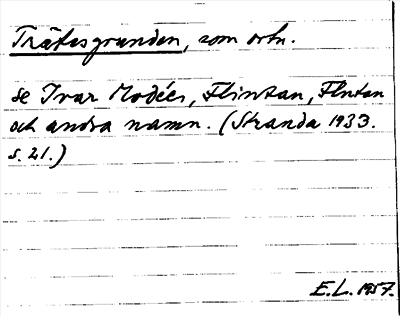 Trätesgrunden, som ortn.
se Ivar Modéer, Flintan, Flutan
och andra namn. (Stranda 1933.
s. 21.)
E.L. 1957.